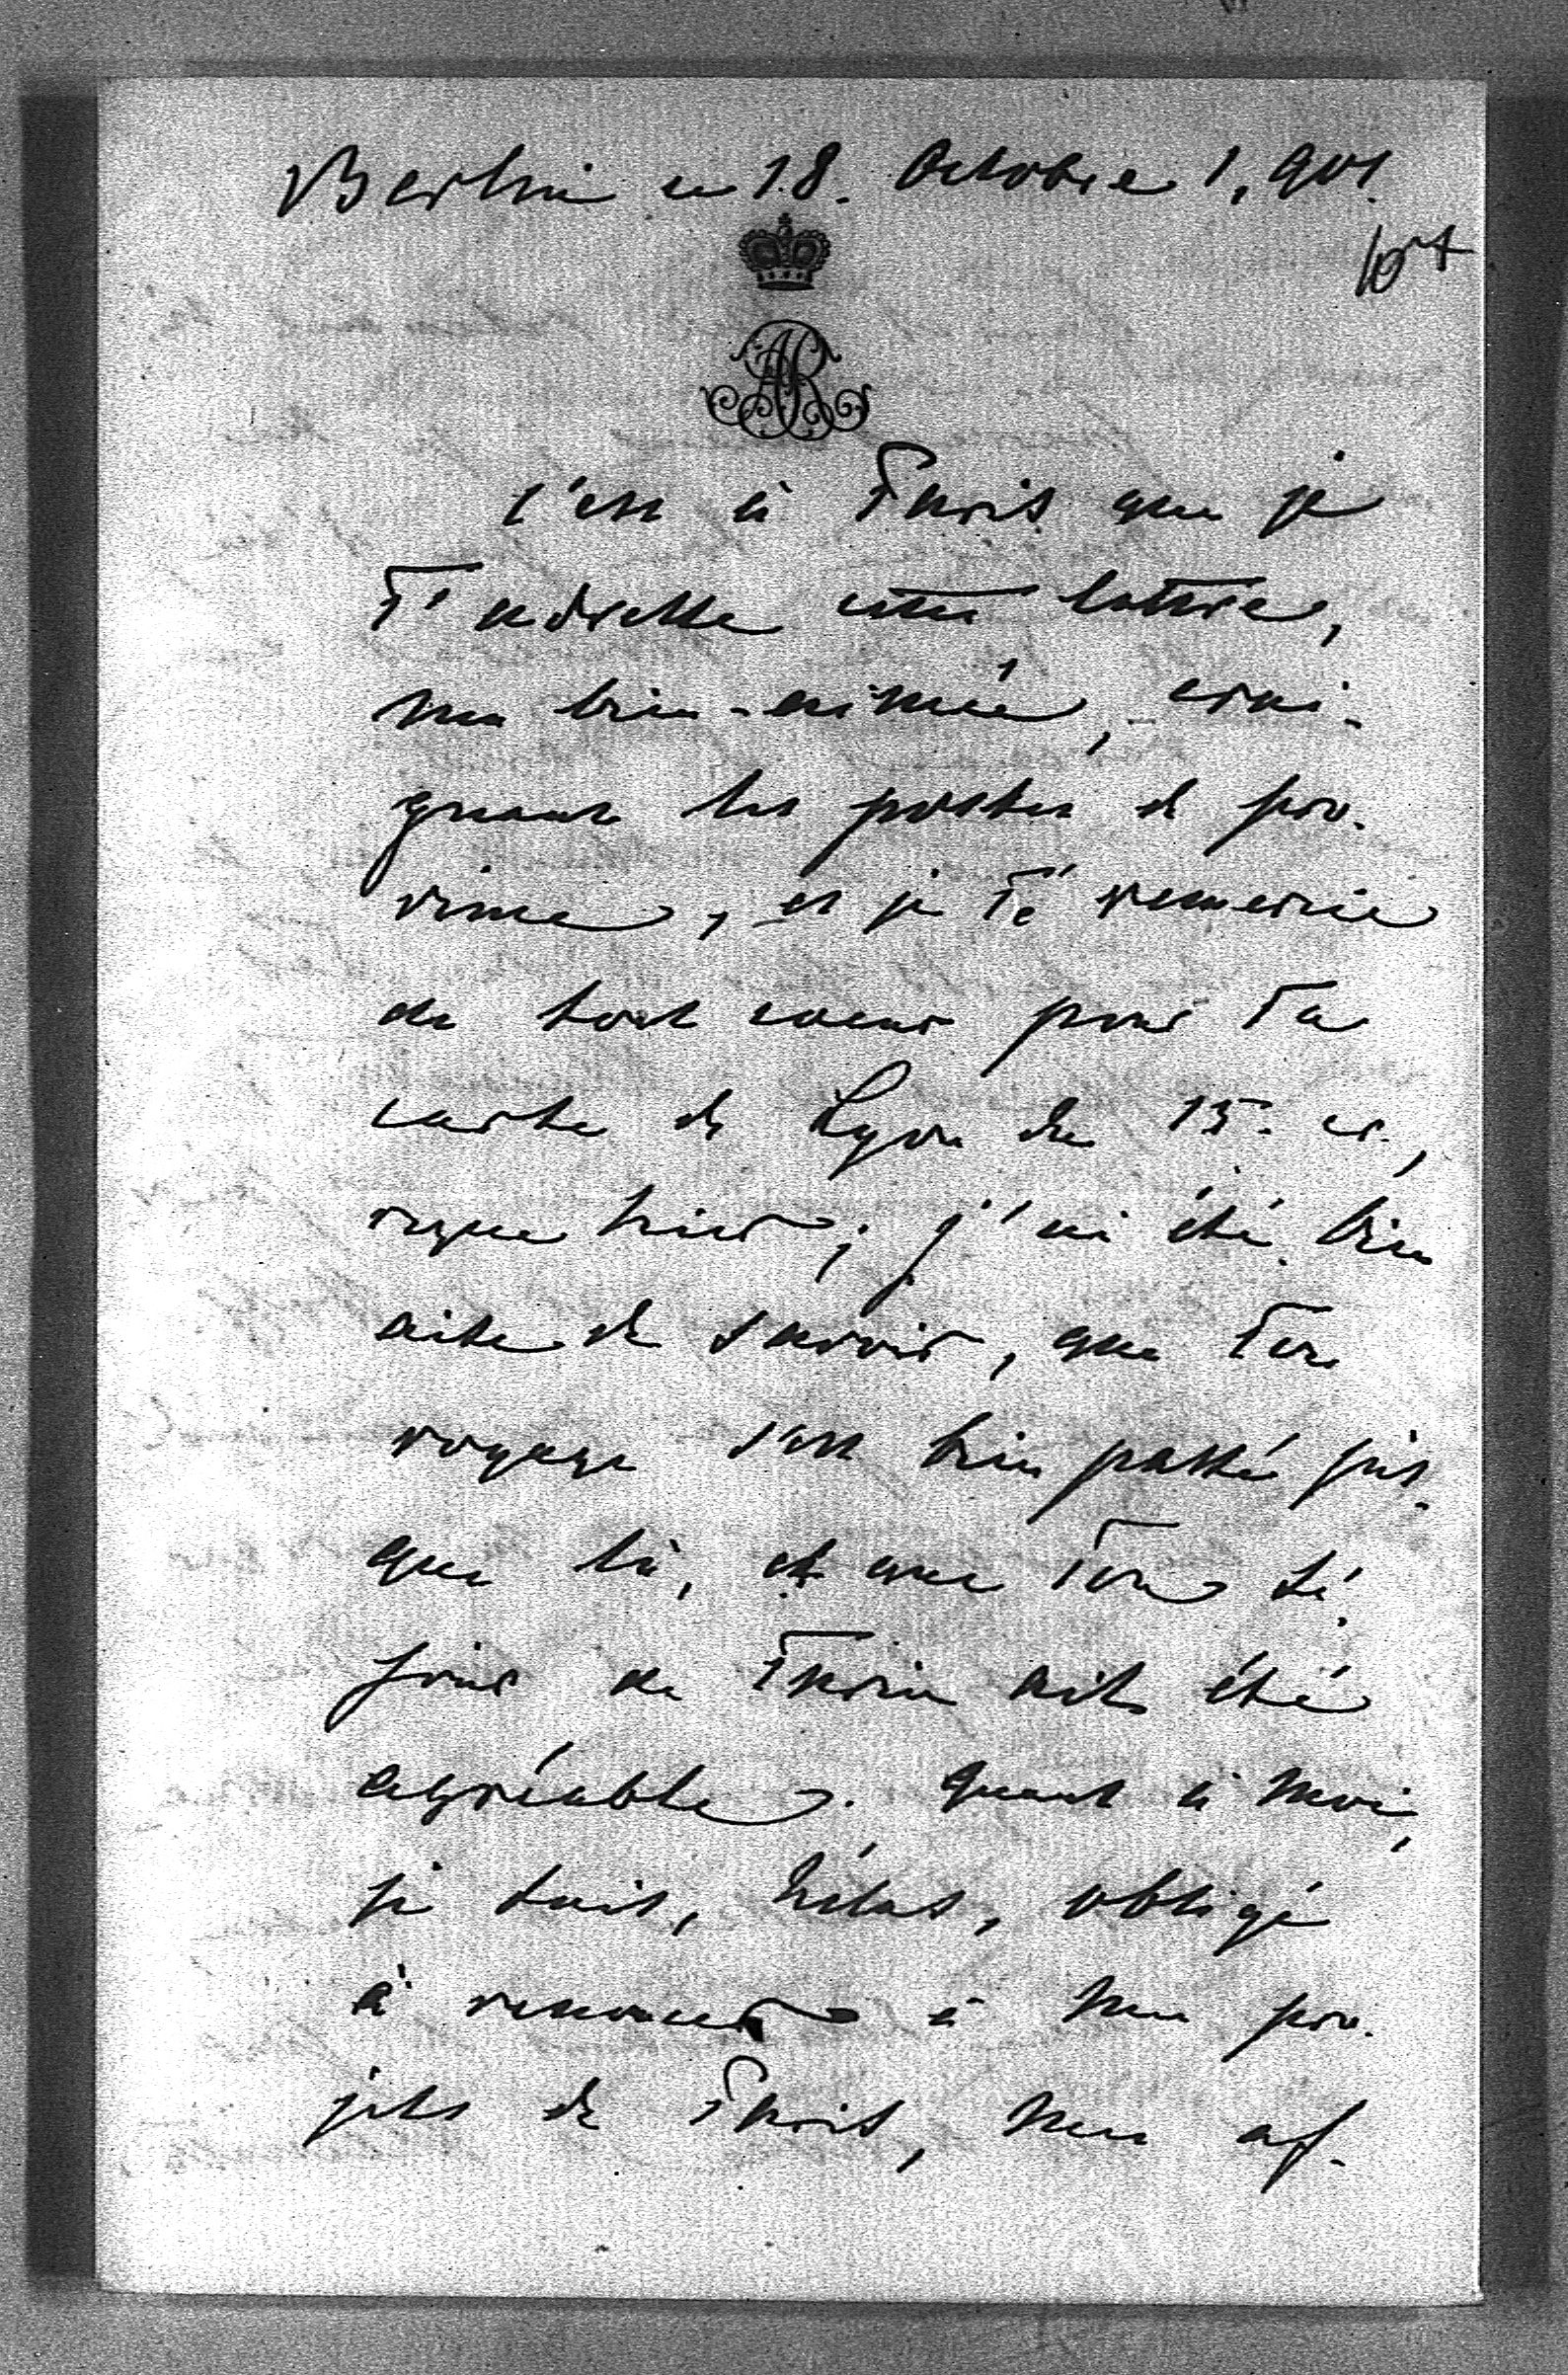 Berlin ce 18. Octobre 1,901.
AR
C'est à Paris que je
T'adresse cette lettre,
ma bien-aimée, crai-
gnant les postes de pro-
vince, et je Te remercie
de tout coeur pour Ta
carte de Lyon du 15. cr.,
reçue hier; j'ai été bien
aise de savoir, que Ton
voyage s'est bien passé jus-
que là, et que Ton sé-
jour de Turin ait été
agréable. Quant à moi,
je suis, hélas, obligé
à renoncer à mes pro-
jets de Paris, mes af-